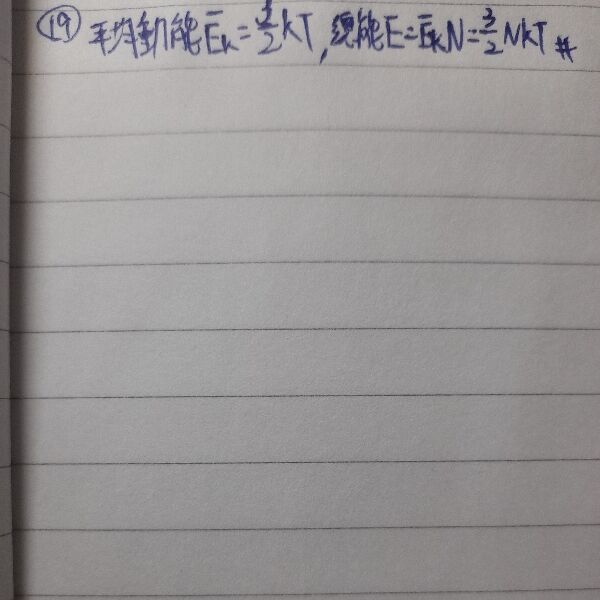 ⑲ 平均動能Ēₖ=3/2kT, 總能E=ĒₖN=3/2NkT #